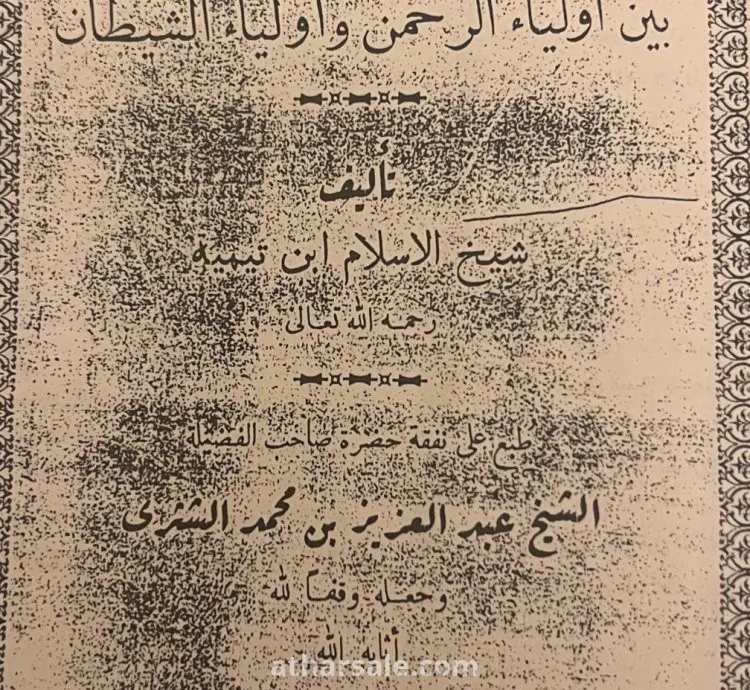 بين أولياء الرحمن وأولياء الشيطان
تأليف
شيخ الاسلام ابن تيمية
رحمه الله تعالى
طبع على نفقة حضرة صاحب الفضيلة
الشيخ عبد العزيز بن محمد الشثرى
وجعله وقفاً لله
أثابه الله
atharsale.com